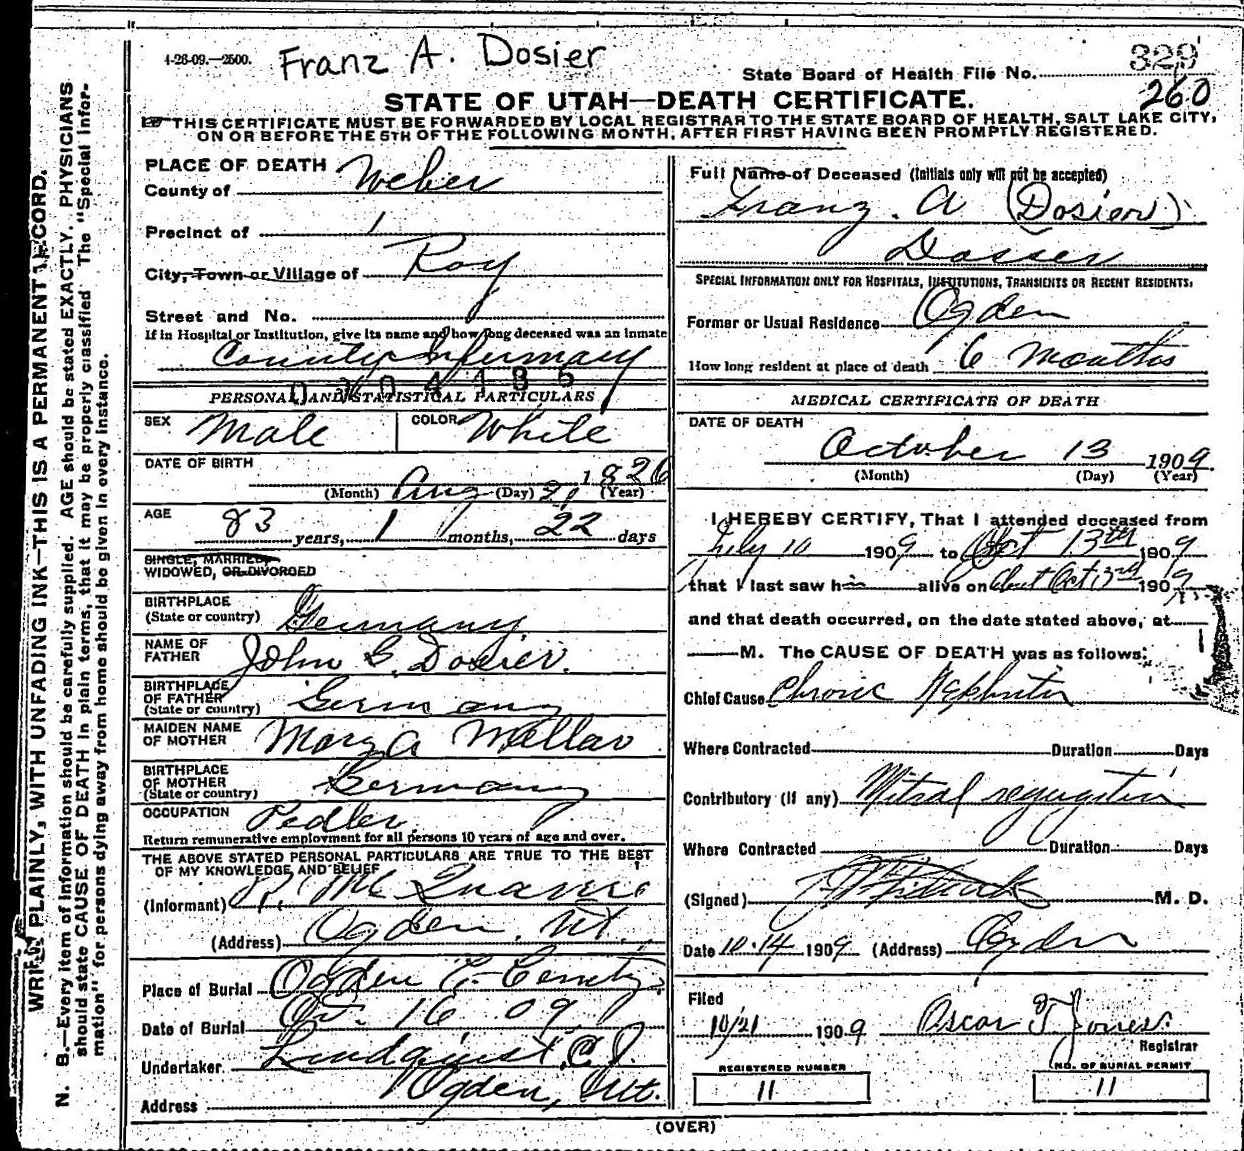 WRITE PLAINLY, WITH UNFADING INK—THIS IS A PERMANENT RECORD.
N. B.—Every item of information should be carefully supplied. AGE should be stated EXACTLY. PHYSICIANS
should state CAUSE OF DEATH in plain terms, that it may be properly classified. The "Special Infor-
mation" for persons dying away from home should be given in every instance.
4-26-09.—2500.
Franz A. Dosier
329
State Board of Health File No.
260
STATE OF UTAH—DEATH CERTIFICATE.
THIS CERTIFICATE MUST BE FORWARDED BY LOCAL REGISTRAR TO THE STATE BOARD OF HEALTH, SALT LAKE CITY,
ON OR BEFORE THE 5TH OF THE FOLLOWING MONTH, AFTER FIRST HAVING BEEN PROMPTLY REGISTERED.
PLACE OF DEATH
County of Weber
Precinct of 1
City, Town or Village of Roy
Street and No.
If in Hospital or Institution, give its name and how long deceased was an inmate
County Infirmary
PERSONAL AND STATISTICAL PARTICULARS
SEX Male COLOR White
DATE OF BIRTH
Aug 21 1826
(Month) (Day) (Year)
AGE
83 years, 1 months, 22 days
SINGLE, MARRIED,
WIDOWED, OR DIVORCED
BIRTHPLACE
(State or country) Germany
NAME OF
FATHER John G. Dosier.
BIRTHPLACE
OF FATHER
(State or country) Germany
MAIDEN NAME
OF MOTHER Mary A Mellar
BIRTHPLACE
OF MOTHER
(State or country) Germany
OCCUPATION Pedler.
Return remunerative employment for all persons 10 years of age and over.
THE ABOVE STATED PERSONAL PARTICULARS ARE TRUE TO THE BEST
OF MY KNOWLEDGE AND BELIEF
(Informant) R. Mc
(Address) Ogden, Ut.
Place of Burial Ogden C. Cemety
Date of Burial Oct. 16 09
Undertaker Lindquist, C. J.
Address Ogden, Ut.
Full Name of Deceased (Initials only will not be accepted)
Franz. A (Dosier)
Dosser
SPECIAL INFORMATION ONLY FOR HOSPITALS, INSTITUTIONS, TRANSIENTS OR RECENT RESIDENTS.
Former or Usual Residence Ogden
How long resident at place of death 6 Months
MEDICAL CERTIFICATE OF DEATH
DATE OF DEATH
October 13 1909
(Month) (Day) (Year)
I HEREBY CERTIFY, That I attended deceased from
July 10 1909 to Oct 13th 1909
that I last saw him alive on about Oct 3rd 1909
and that death occurred, on the date stated above, at
M. The CAUSE OF DEATH was as follows:
Chief Cause Chronic Nephritis
Where Contracted Duration Days
Contributory (if any) Mitral regurgitation
Where Contracted Duration Days
(Signed) M. D.
Date 10-14 1909 (Address) Ogden
Filed
10/21 1909 Oscar T Jones.
Registrar
REGISTERED NUMBER
11
NO. OF BURIAL PERMIT
11
(OVER)